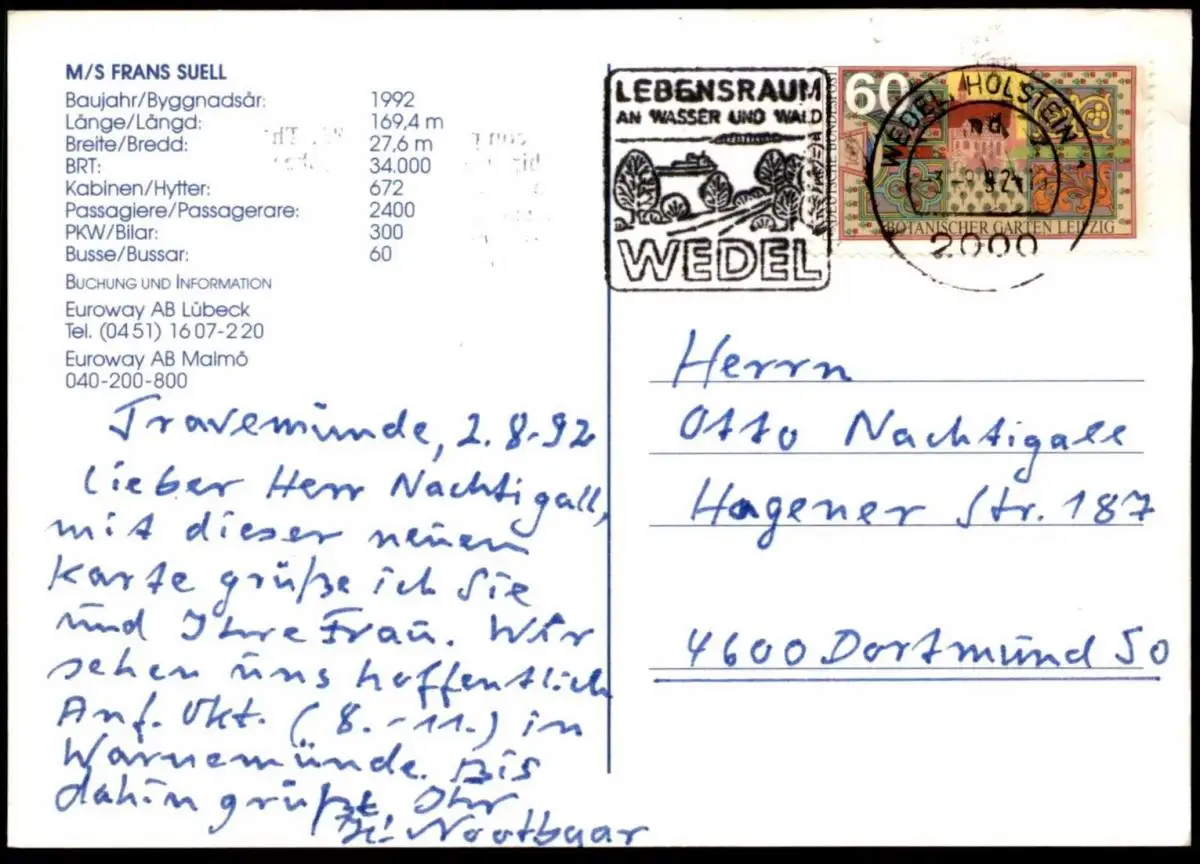 M/S FRANS SUELL
Baujahr/Byggnadsår: 1992
Länge/Längd: 169,4 m
Breite/Bredd: 27,6 m
BRT: 34.000
Kabinen/Hytter: 672
Passagiere/Passagerare: 2400
PKW/Bilar: 300
Busse/Bussar: 60
BUCHUNG UND INFORMATION
Euroway AB Lübeck
Tel. (04 51) 16 07-2 20
Euroway AB Malmö
040-200-800
Travemünde, 2.8.92
Lieber Herr Nachtigall,
mit dieser neuen
Karte grüße ich Sie
und Ihre Frau. Wir
sehen uns hoffentlich
Anf. Okt. (8.-11.) in
Warnemünde. Bis
dahin grüßt Ihr
Nootbaar
LEBENSRAUM
AN WASSER UND WALD
WEDEL
60
BOTANISCHER GARTEN LEIPZIG
WEDEL HOLSTEIN 1
2000
Herrn
Otto Nachtigall
Hagener Str. 187
4600 Dortmund 50